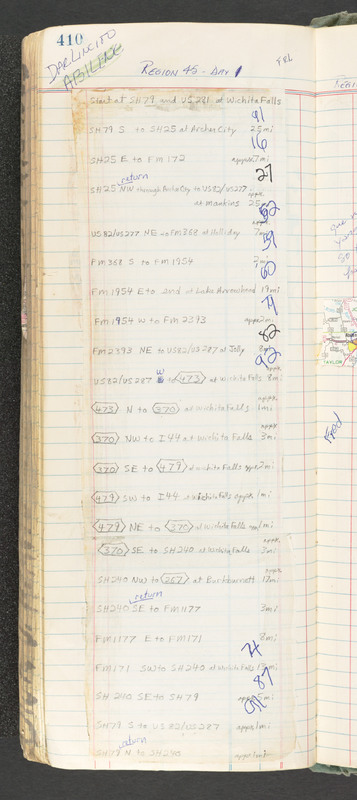 410
DARLINGTO
ABILINE
REGION 45 - DAY 1
FRI
Start at SH79 and US281 at Wichita Falls
91
SH79 S to SH25 at Archer City 25mi
16
SH25 E to FM172 appx 7mi
27
return
SH25 NW through Archer City to US82/US277
appx.
at Mankins 25mi
52
US82/US277 NE to FM368 at Holliday 7mi
59
FM368 S to FM1954 2mi
60
FM1954 E to end at Lake Arrowhead 19mi
79
FM1954 W to FM2393 appx 2mi
82
FM2393 NE to US82/US287 at Jolly 8mi
92
appx.
US82/US287 W to 473 at Wichita Falls 8mi
appx.
473 N to 370 at Wichita Falls 1mi
appx.
370 NW to I44 at Wichita Falls 3mi
370 SE to 479 at Wichita Falls appx 2mi
479 SW to I44 at Wichita Falls appx 1mi
479 NE to 370 at Wichita Falls appx 1mi
appx.
370 SE to SH240 at Wichita Falls 3mi
appx.
SH240 NW to 267 at Burkburnett 17mi
return
SH240 SE to FM1177 3mi
FM1177 E to FM171 8mi
74
FM171 SW to SH240 at Wichita Falls 13mi
87
SH240 SE to SH79 appx 5mi
91
SH79 S to US82/US287 appx 1mi
return
SH79 N to SH240 appx 1mi